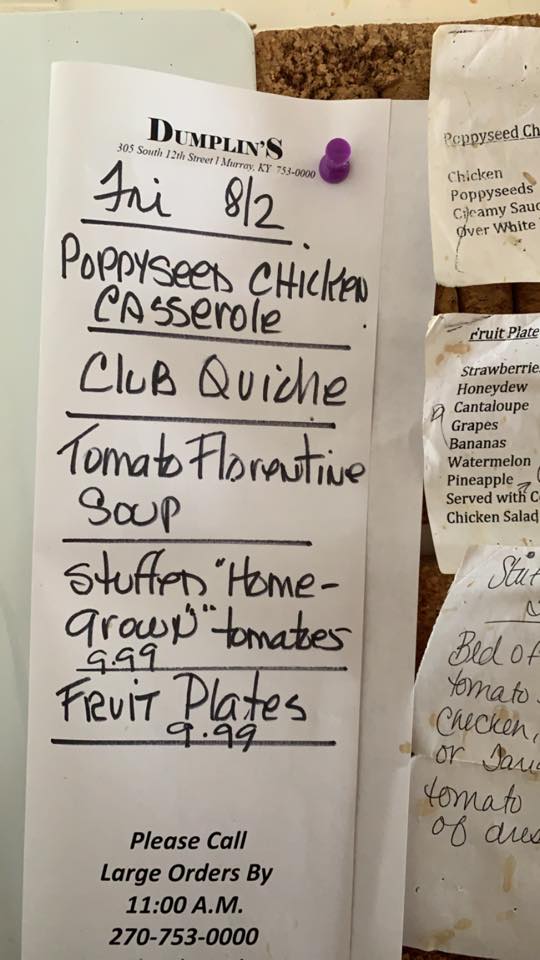 DUMPLIN'S
305 South 12th Street | Murray, KY 753-0000
Fri 8/2
POPPYSEED CHICKEN
CASSEROLE
CLUB QUICHE
Tomato Florentine
Soup
Stuffed "Home-
grown" tomatoes
9.99
FRUIT Plates
9.99
Please Call
Large Orders By
11:00 A.M.
270-753-0000
Poppyseed Ch
Chicken
Poppyseeds
Creamy Sauc
Over White
Fruit Plate
Strawberrie
Honeydew
Cantaloupe
Grapes
Bananas
Watermelon
Pineapple
Served with C
Chicken Salad
Stuf
Bed of
tomato
Chicken,
or
tomato
of dres